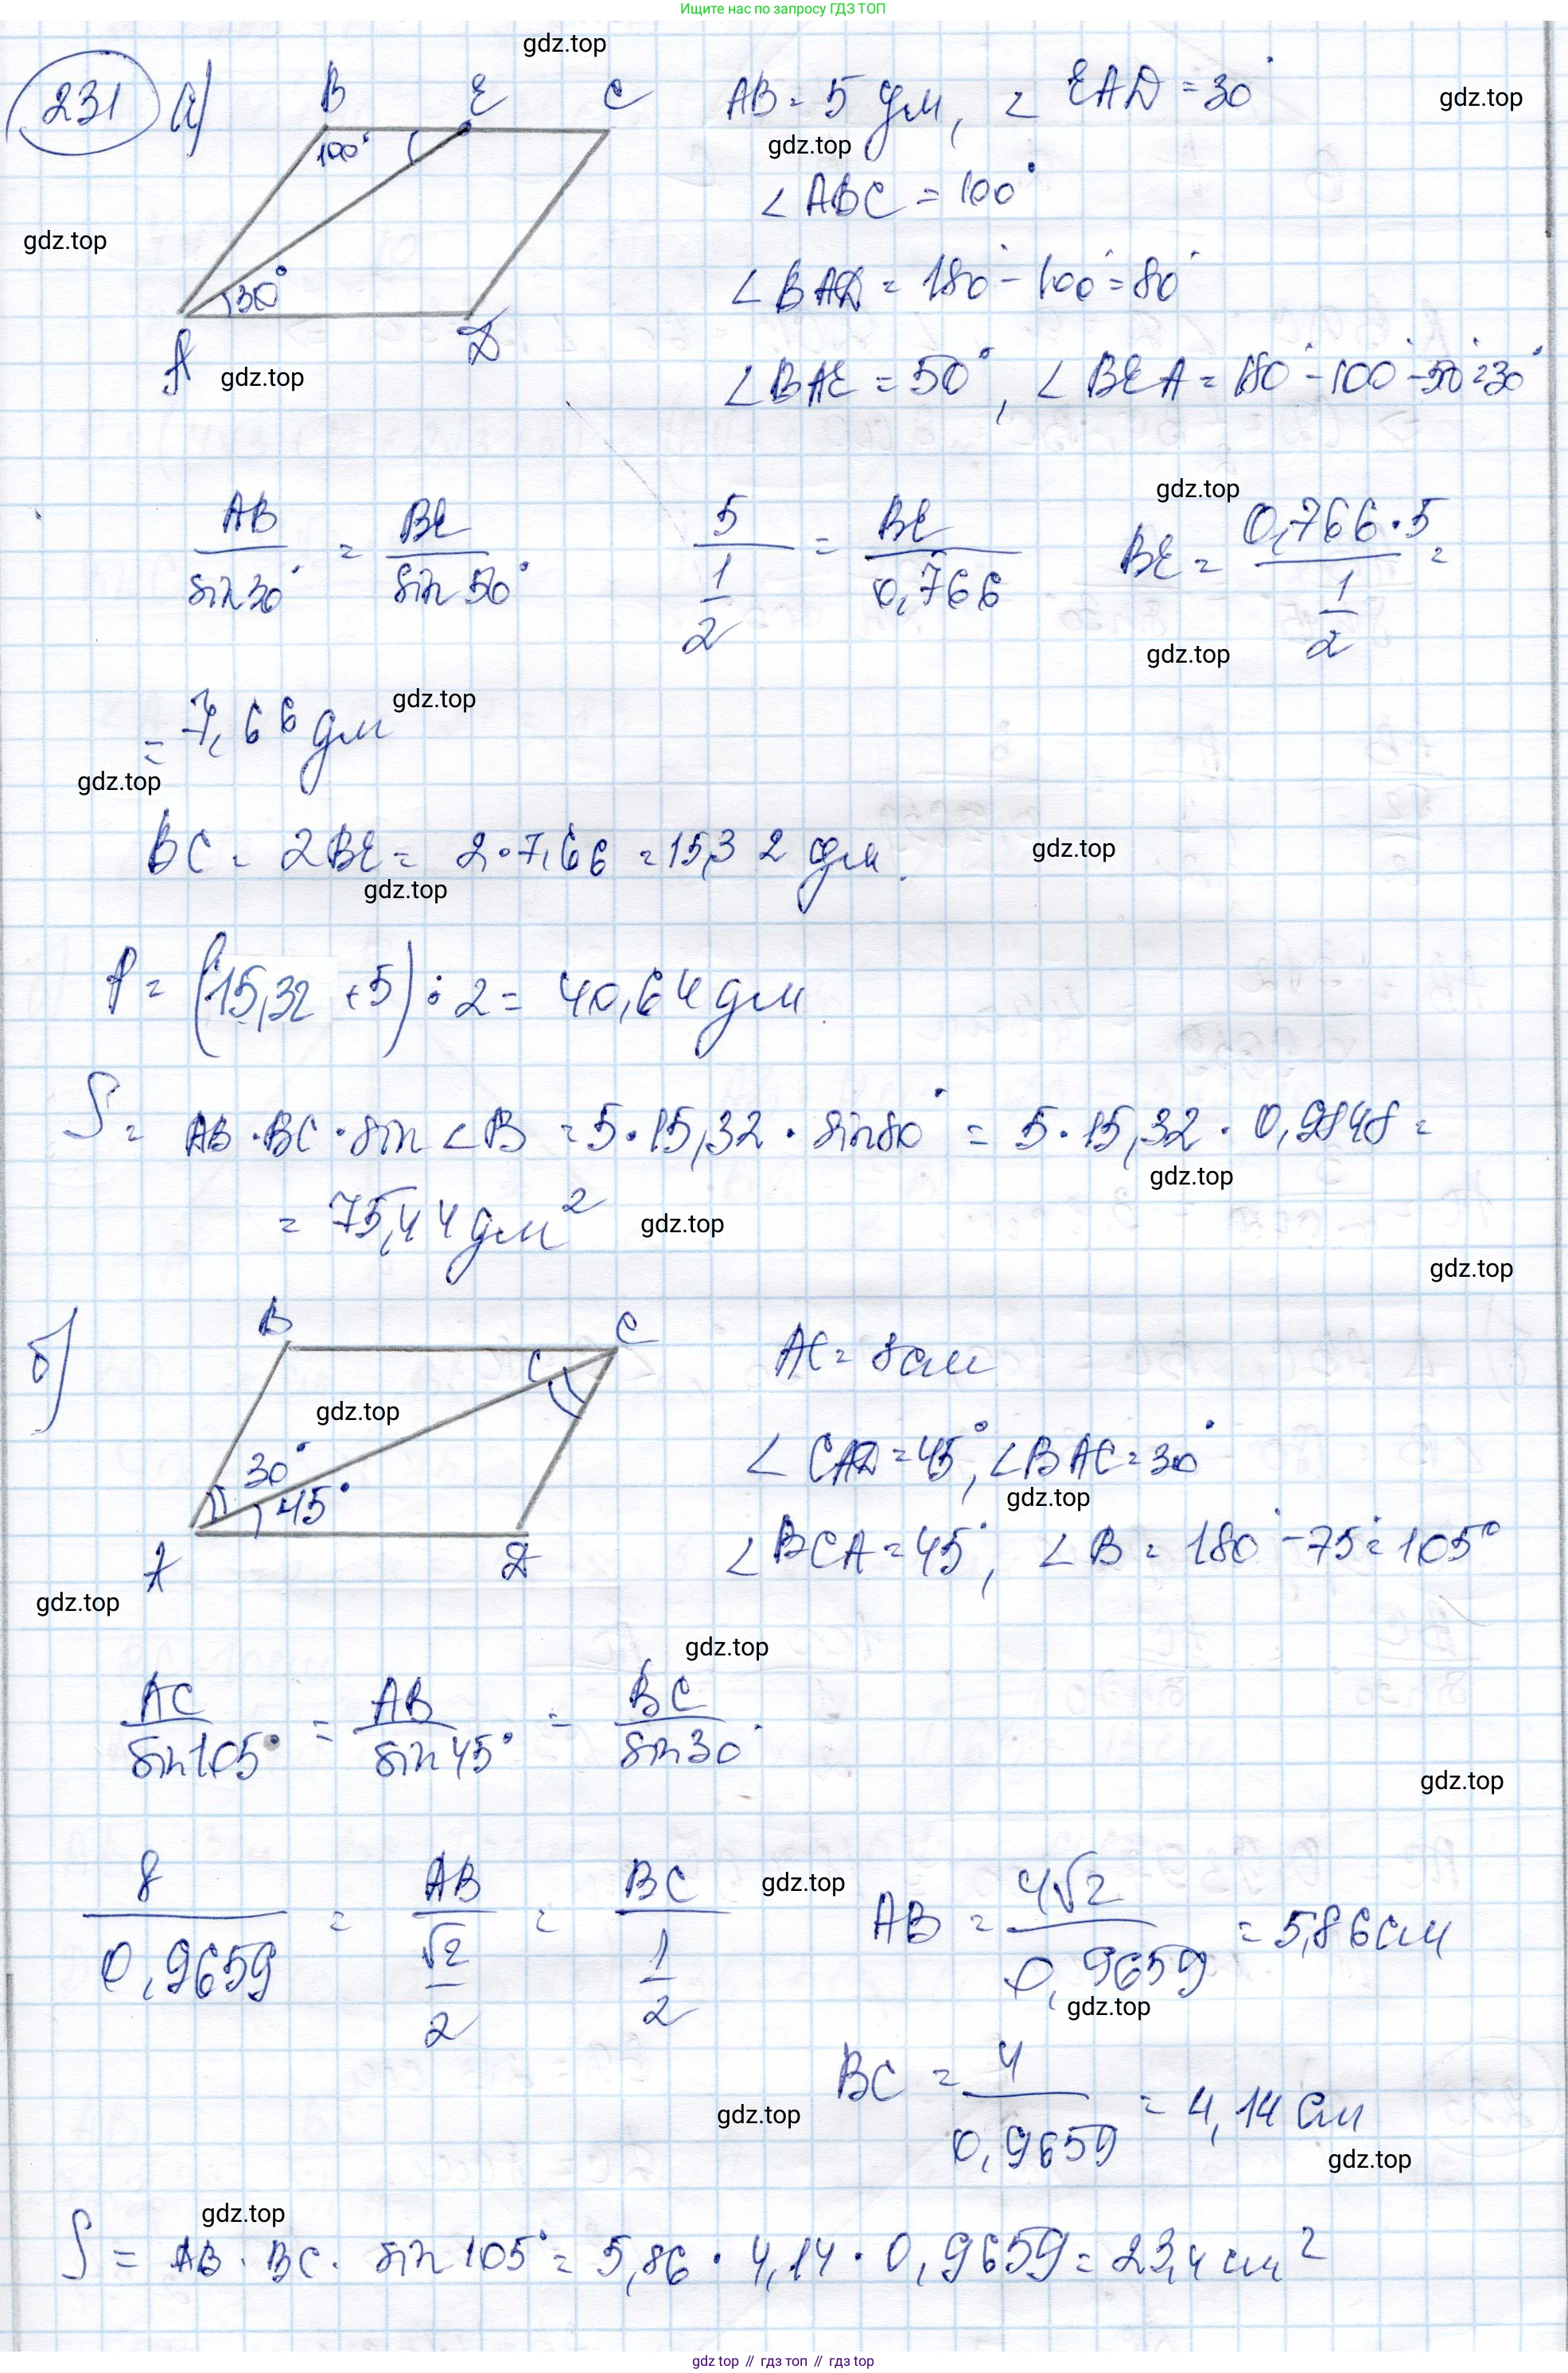 Ищите нас по запросу ГДЗ ТОП
gdz.top
231 а)
B E C
100°
30°
A D
AB = 5 дм, ∠ EAD = 30°
gdz.top
gdz.top
∠ ABC = 100°
gdz.top
∠ BAD = 180° - 100° = 80°
∠ BAE = 50°, ∠ BEA = 180° - 100° - 50° = 30°
gdz.top
AB/sin 30° = BE/sin 50°
5/(1/2) = BE/0,766
gdz.top
BE = 0,766 · 5/(1/2) =
gdz.top
= 7,66 дм
gdz.top
gdz.top
BC = 2BE = 2 · 7,66 = 15,32 дм.
gdz.top
gdz.top
P = (15,32 + 5) : 2 = 40,64 дм
S = AB · BC · sin ∠ B = 5 · 15,32 · sin 80° = 5 · 15,32 · 0,9848 =
gdz.top
= 75,44 дм²
gdz.top
gdz.top
б)
B C
gdz.top
30°
45°
A D
AC = 8 см
∠ CAD = 45°, ∠ BAC = 30°
gdz.top
∠ BCA = 45°, ∠ B = 180° - 75° = 105°
gdz.top
gdz.top
AC/sin 105° = AB/sin 45° = BC/sin 30°
gdz.top
8/0,9659 = AB/(√2/2) = BC/(1/2)
gdz.top
AB = 4√2/0,9659 = 5,86 см
gdz.top
BC = 4/0,9659 = 4,14 см
gdz.top
gdz.top
gdz.top
S = AB · BC · sin 105° = 5,86 · 4,14 · 0,9659 = 23,4 см²
gdz.top // гдз топ // гдз top